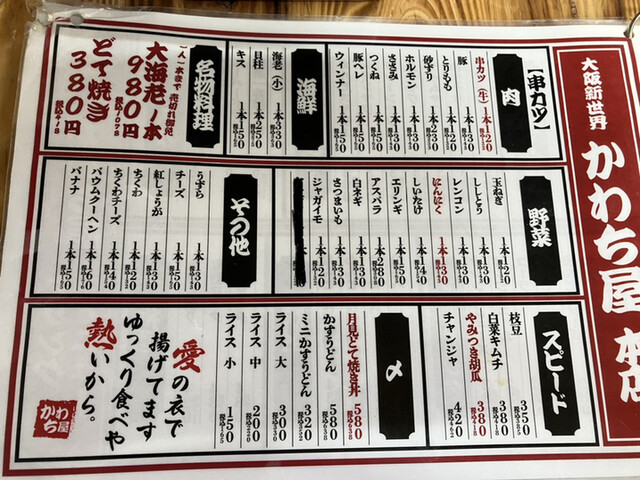 大阪新世界
かわち屋 本店
【串カツ】
肉
串カツ(牛) 1本120
豚 1本130
とりもも 1本120
砂ずり 1本130
ホルモン 1本130
ささみ 1本130
つくね 1本150
豚ヘレ 1本150
ウィンナー 1本150
海鮮
海老(小) 1本330
貝柱 1本250
キス 1本150
名物料理
一人一本まで 売切れ御免
大海老一本
980円
税込1078
どて焼き
380円
税込418
野菜
玉ねぎ 1本120
ししとう 1本130
レンコン 1本130
にんにく 1本130
しいたけ 1本140
エリンギ 1本150
アスパラ 1本280
白ネギ 1本130
さつまいも 1本130
ジャガイモ 1本120
その他
うずら 1本130
チーズ 1本150
紅しょうが 1本130
ちくわ 1本120
ちくわチーズ 1本140
バウムクーヘン 1本160
バナナ 1本150
スピード
枝豆 350
白菜キムチ 380
やみつき胡瓜 380
チャンジャ 420
〆
月見どて焼き丼 580
かすうどん 580
ミニかすうどん 320
ライス 大 300
ライス 中 200
ライス 小 150
愛の衣で
揚げてます
ゆっくり食べや
熱いから。
かわち屋